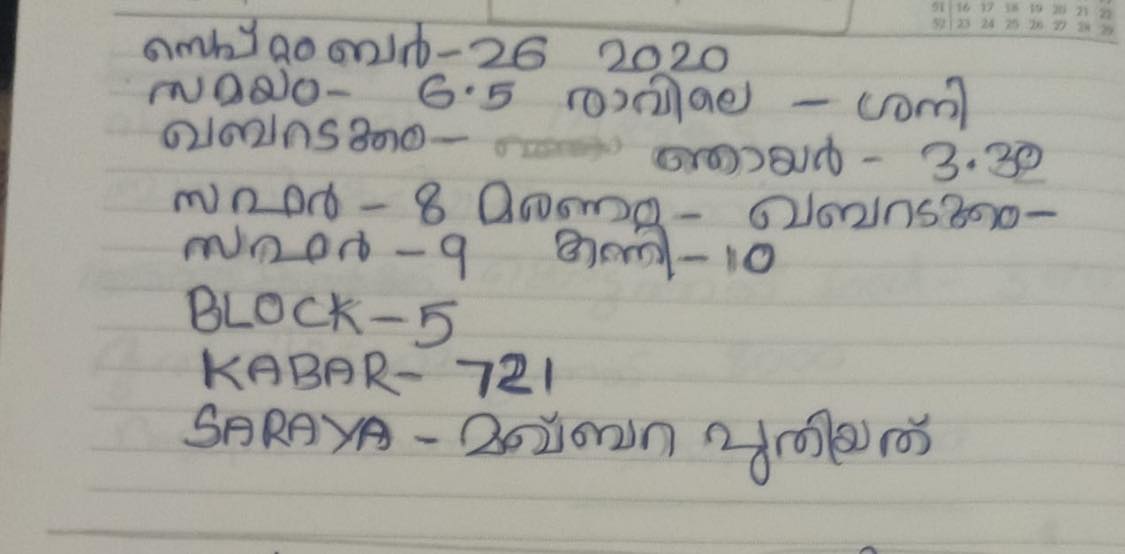 51 16 17 18 19 20 21 22
52 23 24 25 26 27 28 29
സെപ്റ്റംബർ-26 2020
സമയം- 6.5 രാവിലെ - ശനി
ഖബറടക്കം- ഞായർ - 3.30
സഫർ - 8 മരണം - ഖബറടക്കം-
സഫർ - 9 കന്നി - 10
BLOCK-5
KABAR- 721
SARAYA - മഖ്ബറ പുതിയത്